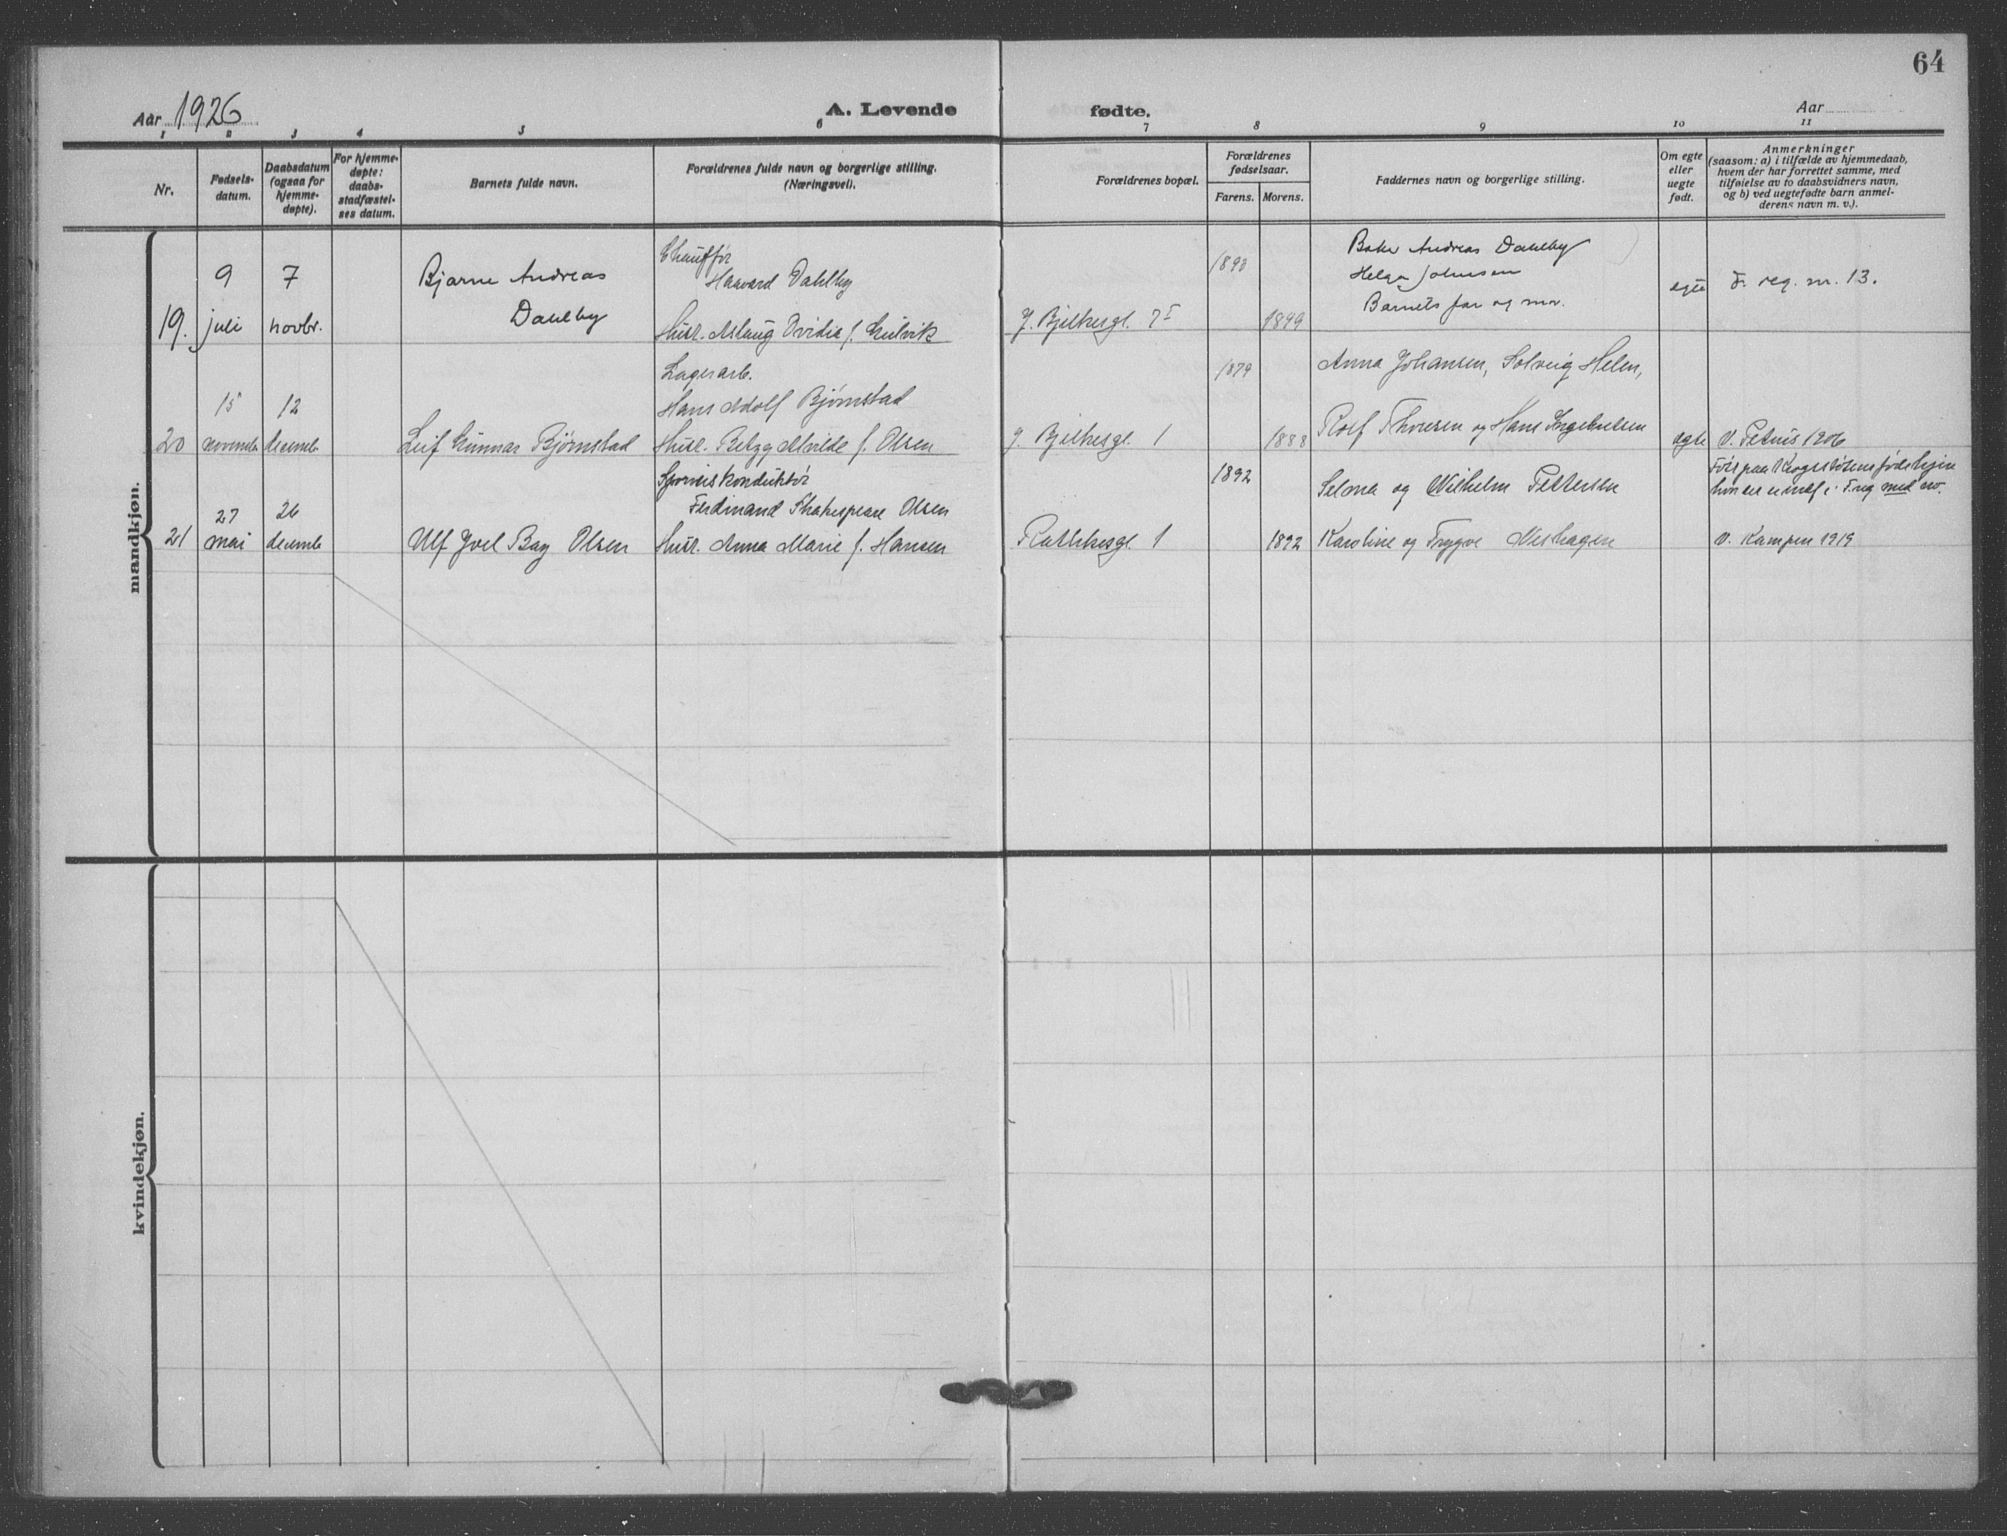 64
Aar 1926
A. Levende
fødte.
Aar
1 2 3 4 5 6 7 8 9 10 11
Nr.
Fødsels-
datum.
Daabsdatum
(ogsaa for
hjemme-
døpte).
For hjemme-
døpte:
daabs-
stadfæstel-
ses datum.
Barnets fulde navn.
Forældrenes fulde navn og borgerlige stilling.
(Næringsvei).
Forældrenes bopæl.
Forældrenes
fødselsaar.
Farens. Morens.
Faddernes navn og borgerlige stilling.
Om egte
eller
uegte
født.
Anmerkninger
(saasom: a) i tilfælde av hjemmedaab,
hvem der har forrettet samme, med
tilføielse av to daabsvidners navn,
og b) ved uegtefødte barn anmel-
derens navn m. v.).
mandkjøn.
19.
9
juli
7
novbr.
Bjarne Andreas
Dahlby
Chauffør
Haavard Dahlby
Hust. Aslaug Ovidia f. Gulvik
J. Bjelkesgt. 7 I
1890
1899
Baker Andreas Dahlby
Helga Johnsen
Barnets far og mor.
egte
F. reg. nr. 13.
20
15
novembr
12
decembr
Leif Gunnar Bjørnstad
Lagerarb.
Hans Adolf Bjørnstad
Hust. Betzy Alvilde f. Olsen
J. Bjelkesgt. 1
1879
1888
Anna Johansen, Solveig Helen,
Rolf Thoresen og Hans Ingebretsen
egte
V. Petrus 1906
21
27
mai
26
decembr
Ulf Joel Bay Olsen
Sporveiskonduktør
Ferdinand Shakespeare Olsen
Hust. Anna Marie f. Hansen
Rathkesgt. 1
1892
1892
Selma og Vilhelm Pettersen
Karoline og Trygve Neshagen
V. Kampen 1919
kvindekjøn.